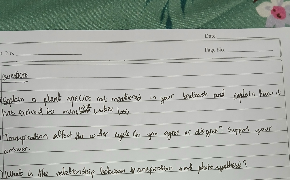 Date
Page No.
Explain a plant species not mentioned in your textbook and explain how it
has evolved to maintain water loss.
Transpiration affect the water cycle. Do you agree or disagree? Support your
answer.
What is the relationship between transpiration and photosynthesis?